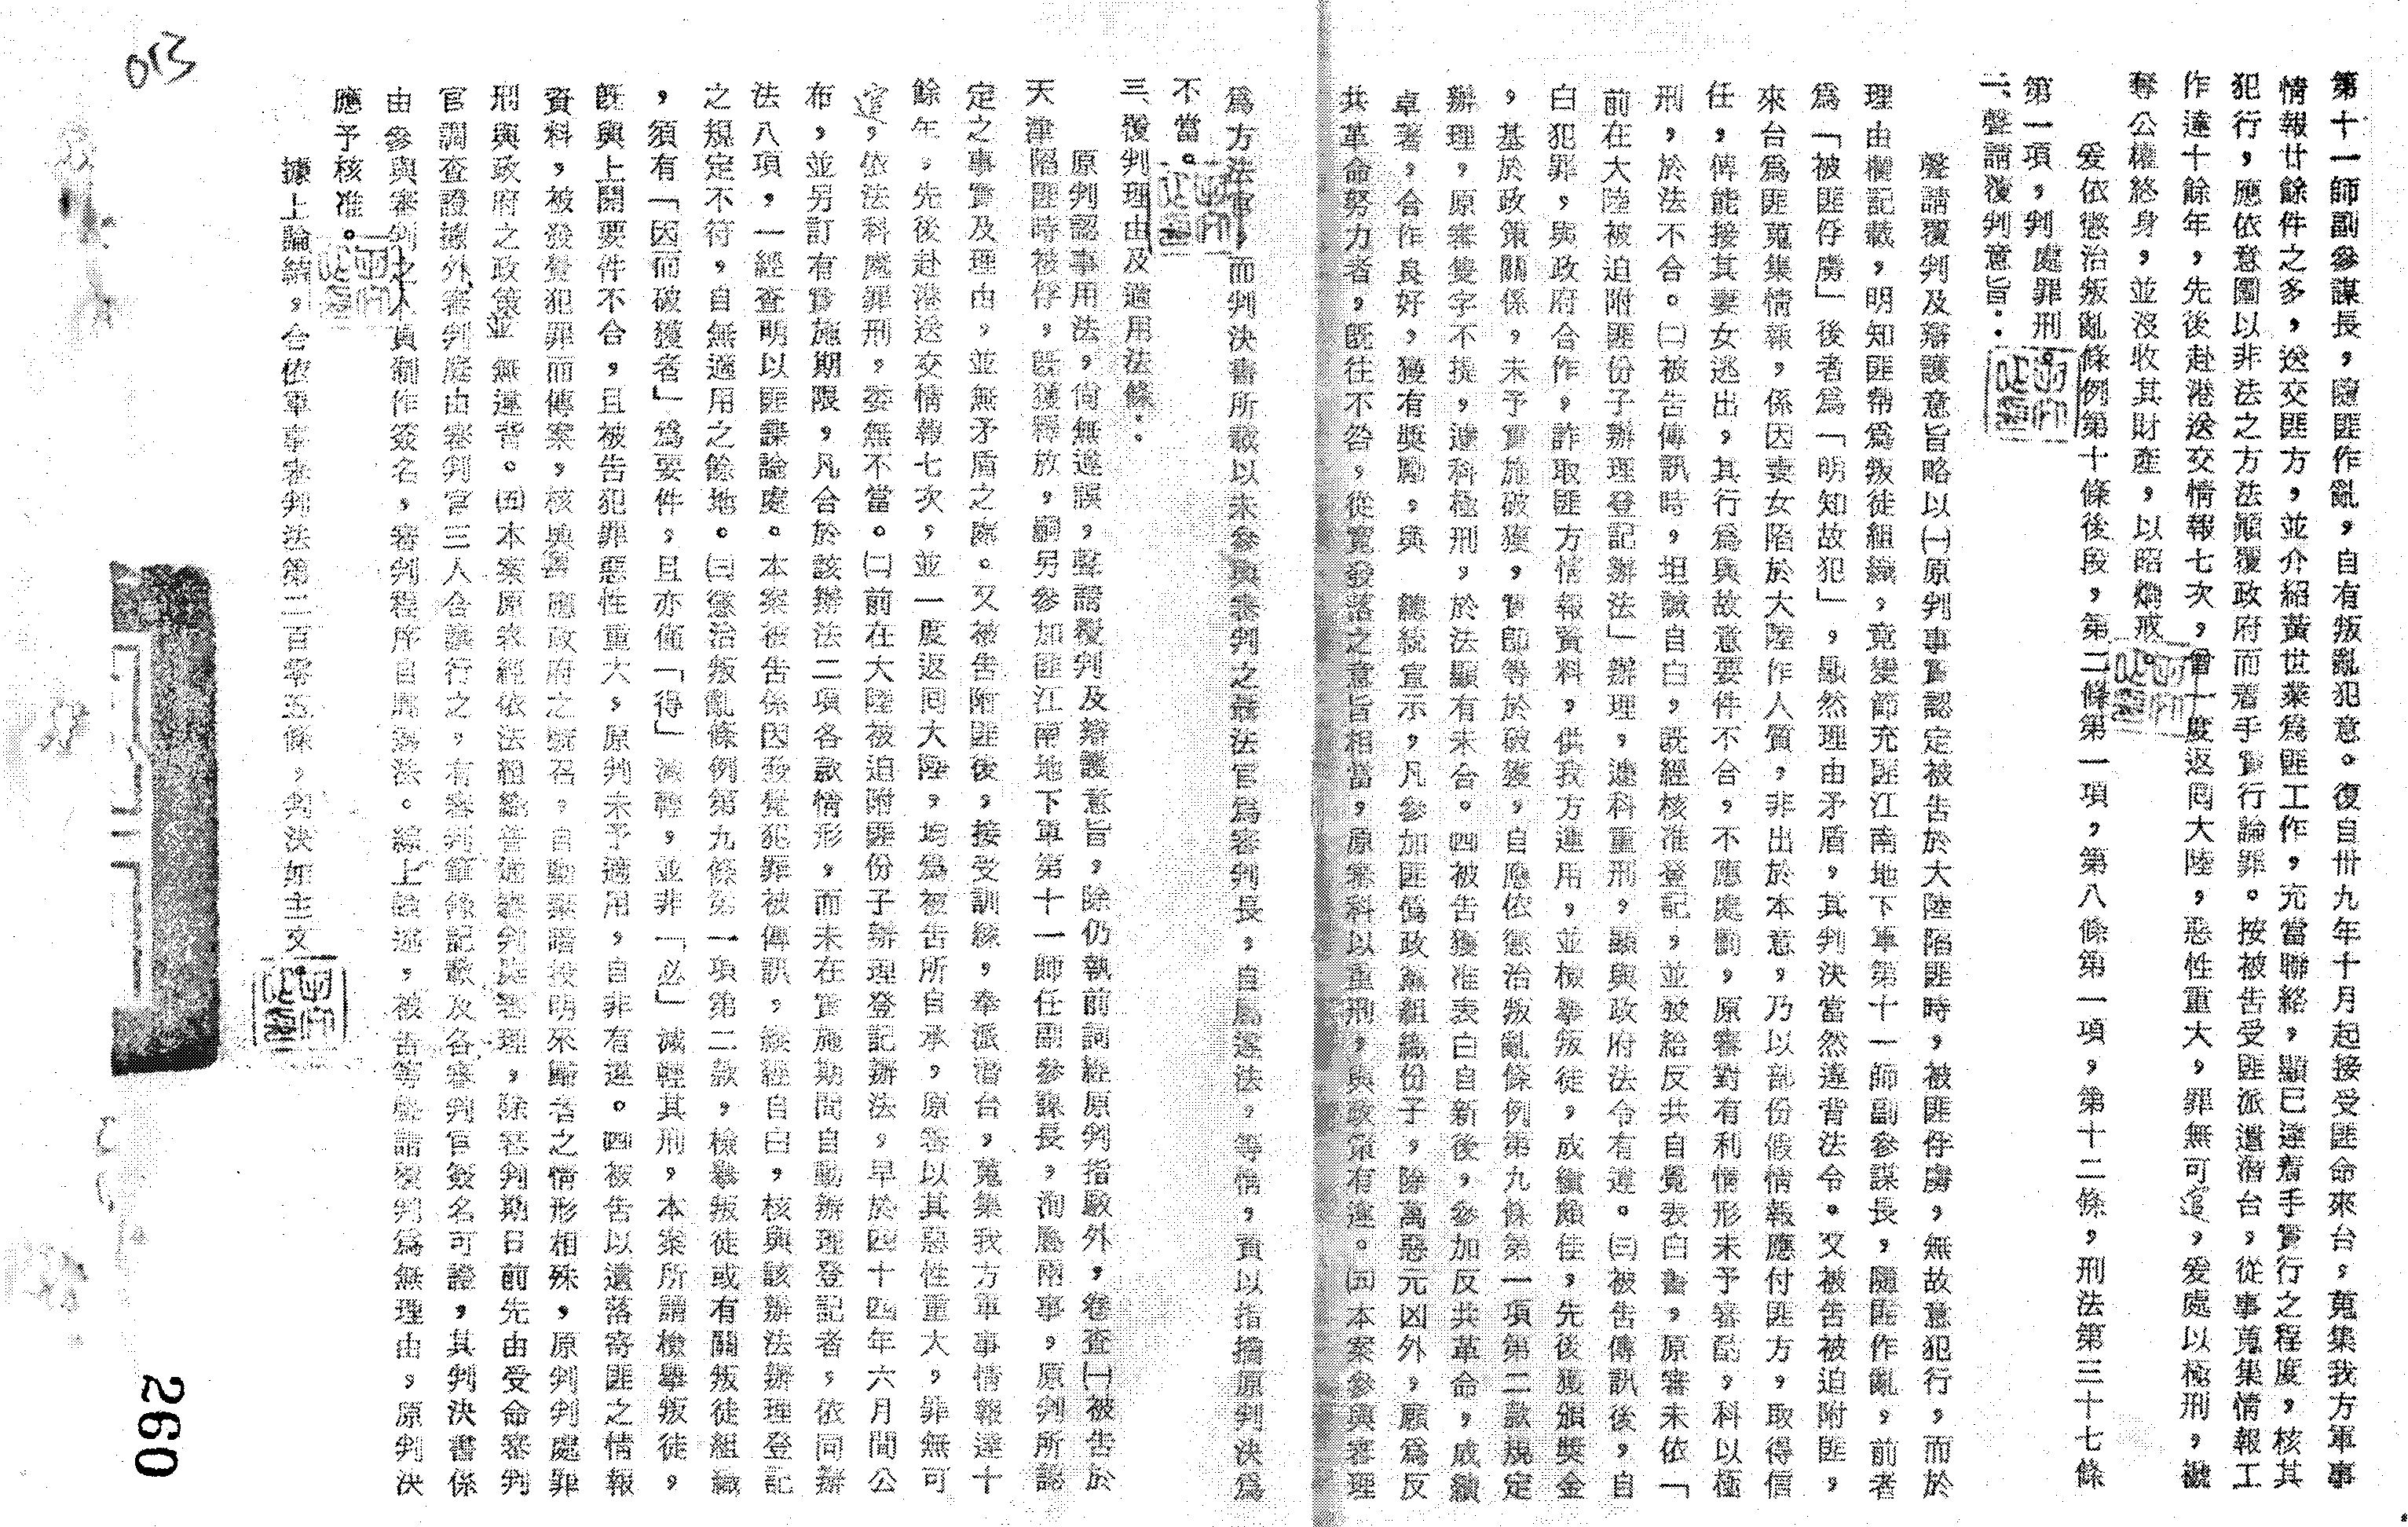 第十一師副參謀長，隨匪作亂，自有叛亂犯意。復自卅九年十月起接受匪命來台，蒐集我方軍事
情報廿餘件之多，送交匪方，並介紹黃世業爲匪工作，充當聯絡，顯已達着手實行之程度，核其
犯行，應依意圖以非法之方法顚覆政府而着手實行論罪。按被告受匪派遣潛台，從事蒐集情報工
作達十餘年，先後赴港送交情報七次，曾一度返囘大陸，惡性重大，罪無可逭，爰處以極刑，褫
奪公權終身，並沒收其財產，以昭烱戒。
爰依懲治叛亂條例第十條後段，第二條第一項，第八條第一項，第十二條，刑法第三十七條
第一項，判處罪刑。
二、聲請覆判意旨：
聲請覆判及辯護意旨略以㈠原判事實認定被告於大陸陷匪時，被匪俘虜，無故意犯行，而於
理由欄記載，明知匪幫爲叛徒組織，竟變節充匪江南地下軍第十一師副參謀長，隨匪作亂，前者
爲「被匪俘虜」後者爲「明知故犯」，顯然理由矛盾，其判決當然違背法令。又被告被迫附匪，
來台爲匪蒐集情報，係因妻女陷於大陸作人質，非出於本意，乃以部份假情報應付匪方，取得信
任，俾能接其妻女逃出，其行爲與故意要件不合，不應處罰，原審對有利情形未予審酌，科以極
刑，於法不合。㈡被告傳訊時，坦誠自白，既經核准登記，並發給反共自覺表白書，原審未依「
前在大陸被迫附匪份子辦理登記辦法」辦理，遽科重刑，顯與政府法令有違。㈢被告傳訊後，自
白犯罪，與政府合作，詐取匪方情報資料，供我方運用，並檢舉叛徒，成績頗佳，先後獲頒獎金
，基於政策關係，未予實施破獲，實即等於破獲，自應依懲治叛亂條例第九條第一項第二款規定
辦理，原審隻字不提，遽科極刑，於法顯有未合。四被告獲准表白自新後，參加反共革命，成績
卓著，合作良好，獲有獎勵，與　總統宣示，凡參加匪僞政黨組織份子，除萬惡元凶外，願爲反
共革命努力者，既往不咎，從寬發落之意旨相當，原案科以重刑，與政策有違。㈤本案參與審理
爲方法官，而判決書所載以未參與審判之聶法官爲審判長，自屬違法，等情，資以指摘原判決爲
不當。
三、覆判理由及適用法條：
原判認事用法，尙無違誤，聲請覆判及辯護意旨，除仍執前詞經原判指駁外，卷查㈠被告於
天津陷匪時被俘，既獲釋放，嗣另參加匪江南地下軍第十一師任副參謀長，洵屬兩事，原判所認
定之事實及理由，並無矛盾之處。又被告附匪後，接受訓練，奉派潛台，蒐集我方軍事情報達十
餘年，先後赴港送交情報七次，並一度返囘大陸，均爲被告所自承，原審以其惡性重大，罪無可
逭，依法科處罪刑，委無不當。㈡前在大陸被迫附匪份子辦理登記辦法，早於四十四年六月間公
布，並另訂有實施期限，凡合於該辦法二項各款情形，而未在實施期間自動辦理登記者，依同辦
法八項，一經查明以匪諜論處。本案被告係因發覺犯罪被傳訊，縱經自白，核與該辦法辦理登記
之規定不符，自無適用之餘地。㈢懲治叛亂條例第九條第一項第二款，檢舉叛徒或有關叛徒組織
，須有「因而破獲者」爲要件，且亦僅「得」減輕，並非「必」減輕其刑，本案所謂檢舉叛徒，
既與上開要件不合，且被告犯罪惡性重大，原判未予適用，自非有違。四被告以遺落寄匪之情報
資料，被發覺犯罪而傳案，核與響應政府之號召，自動棄暗投明來歸者之情形相殊，原判判處罪
刑與政府之政策並無違背。㈤本案原來經依法組織普通審判庭審理，除審判期日前先由受命審判
官調查證據外，審判庭由審判官三人合議行之，有審判筆錄記載及各審判官簽名可證，其判決書係
由參與審判之人員制作簽名，審判程序自屬適法。綜上論述，被告等聲請覆判爲無理由，原判決
應予核准。
據上論結，合依軍事審判法第二百零五條，判決如主文。
013
260